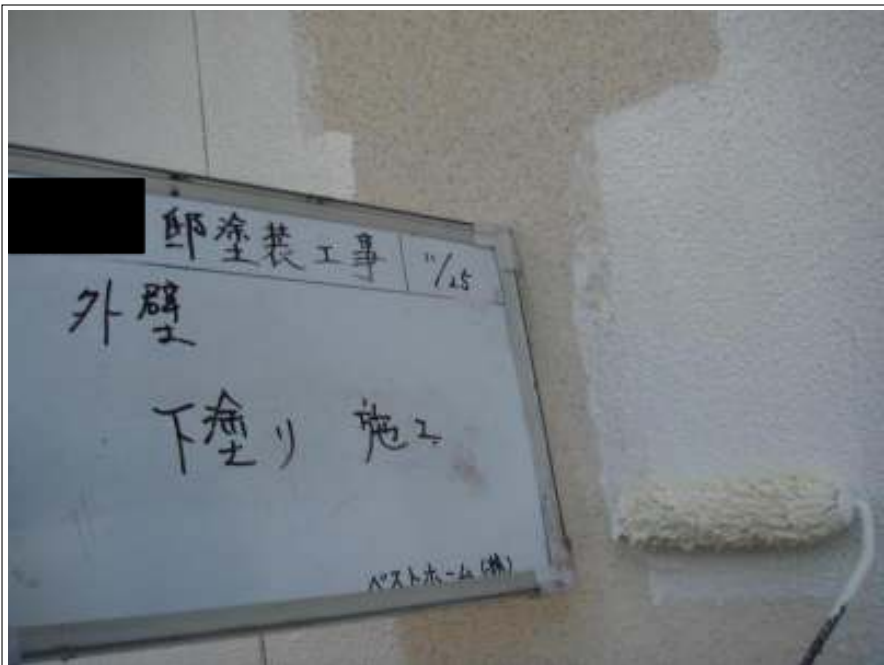 邸塗装工事 11/25
外壁
下塗り 施工
ベストホーム(株)